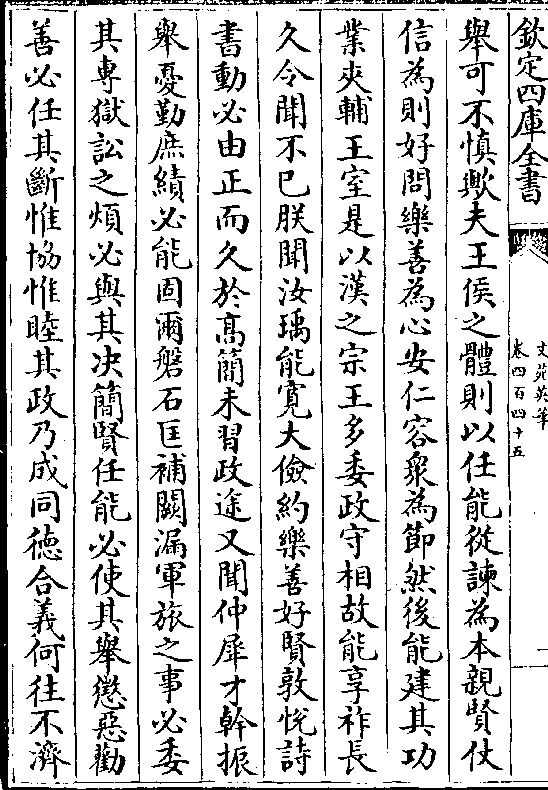 欽定四庫全書
文苑英華
卷四百四十五
舉可不慎歟夫王侯之體則以任能從諫為本親賢仗
信為則好問樂善為心安仁容衆為節然後能建其功
業夾輔王室是以漢之宗王多委政守相故能享祚長
久令聞不已朕聞汝瑀能寛大儉約樂善好賢敦悅詩
書動必由正而久於髙簡未習政途又聞仲犀才幹振
舉憂勤庶績必能固爾磐石匡補闕漏軍旅之事必委
其專獄訟之煩必與其決簡賢任能必使其舉懲惡勸
善必任其斷惟協惟睦其政乃成同徳合義何往不濟